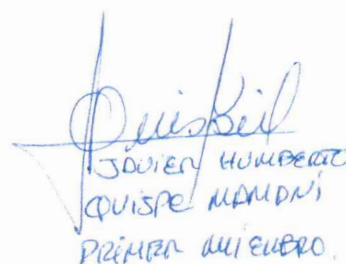 JAVIER HUMBERTO
QUISPE MAMANI
PRIMER MIEMBRO.